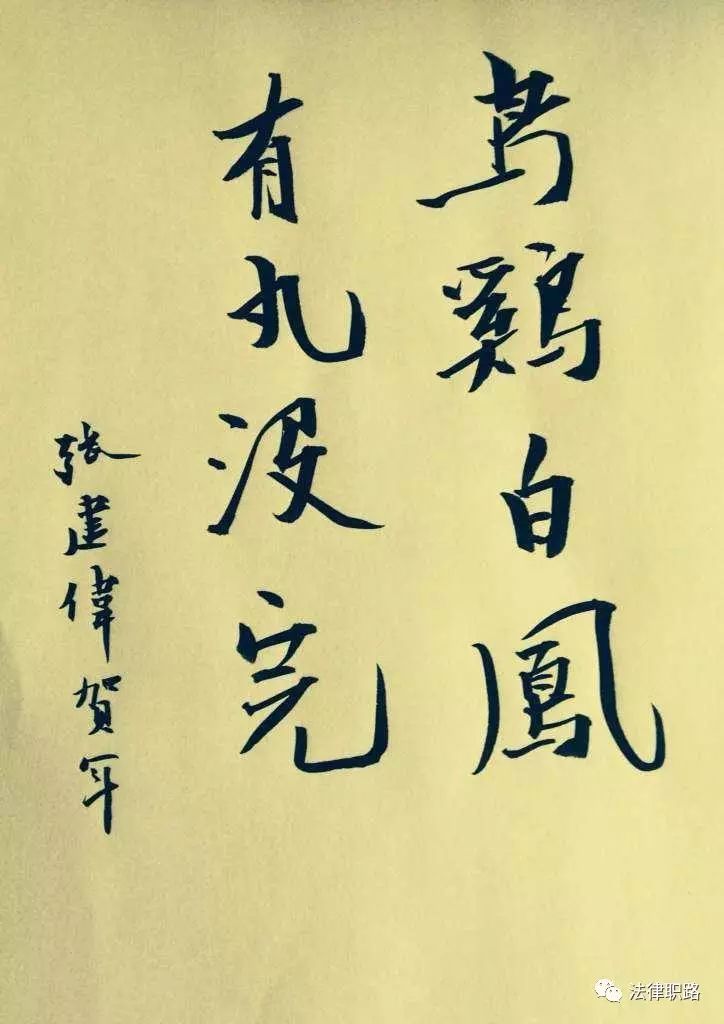 烏鷄白鳳
有丸没完
張建偉賀年
法律职路